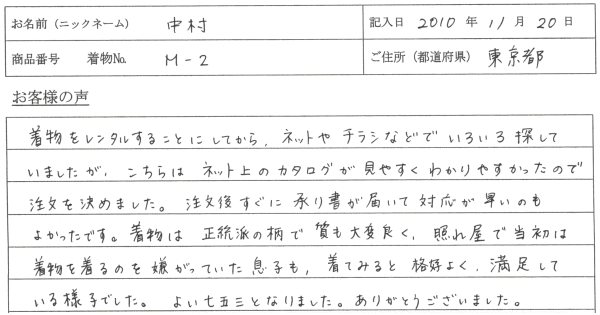 お名前（ニックネーム） 中村 記入日 2010 年 11 月 20 日
商品番号 着物No. M-2 ご住所（都道府県） 東京都
お客様の声
着物をレンタルすることにしてから、ネットや チラシなどで いろいろ 探して
いましたが、こちらは ネット上のカタログが 見やすく わかりやすかったので
注文を決めました。注文後すぐに 承り書が届いて 対応が 早いのも
よかったです。着物は 正統派の柄で 質も大変良く、照れ屋で当初は
着物を着るのを 嫌がっていた 息子も、着てみると 格好よく、満足して
いる様子でした。 よい七五三となりました。ありがとうございました。